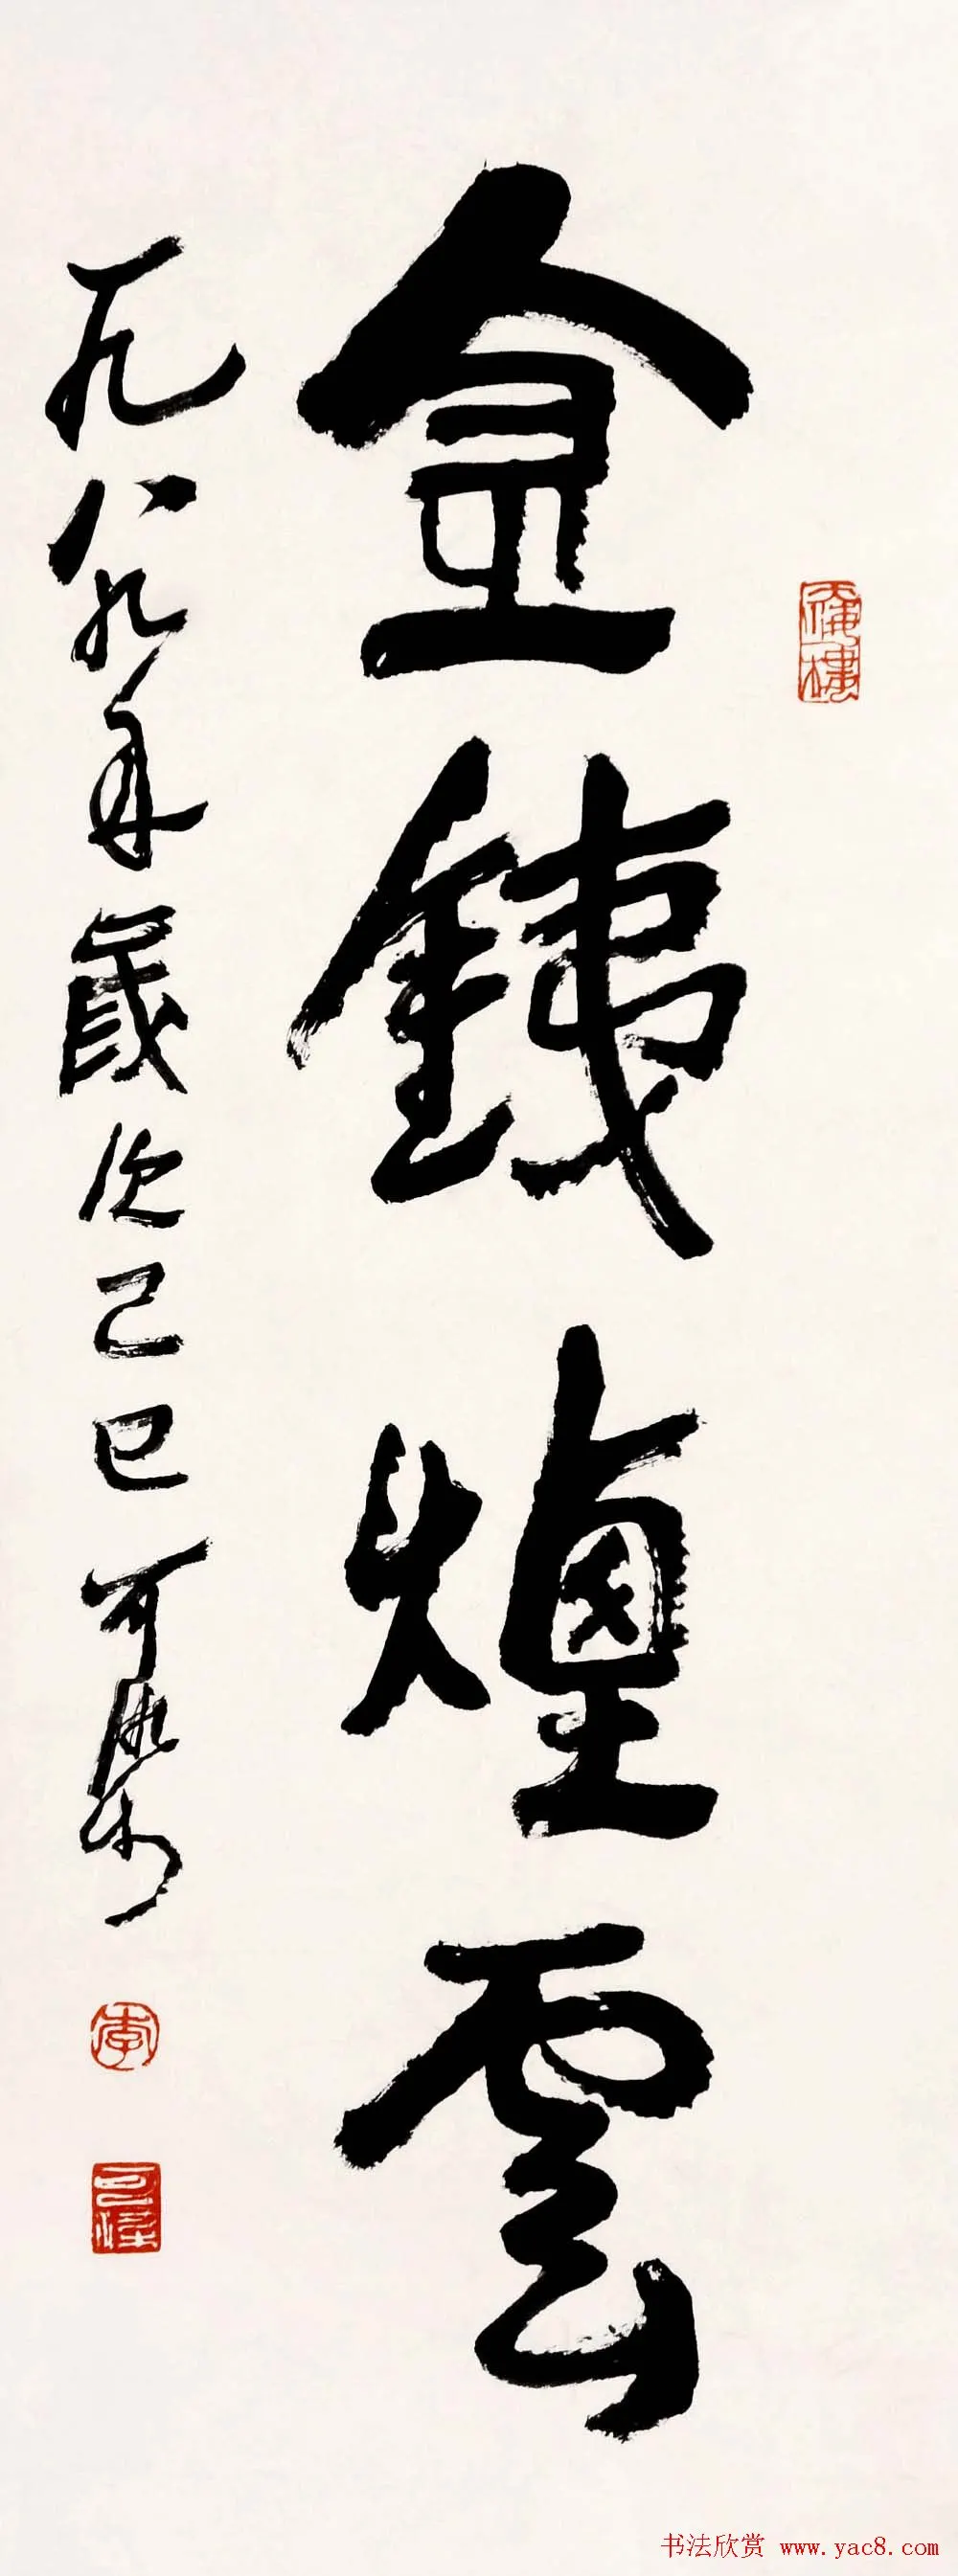 金銕煙雲
一九八九年歲次己巳可染
李
可染
书法欣赏 www.yac8.com